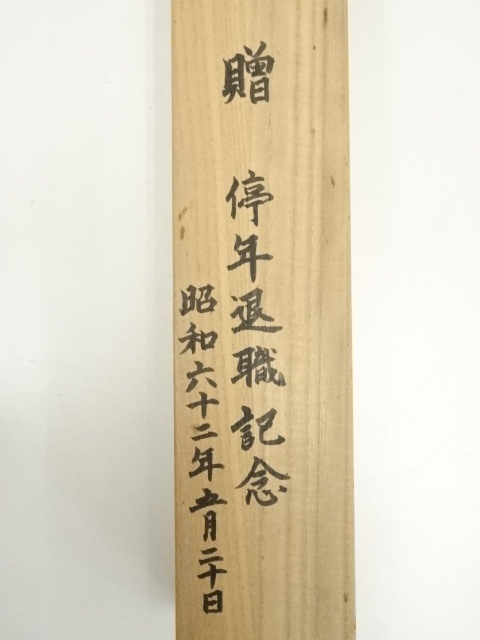 贈 停年退職記念
昭和六十二年五月二十日